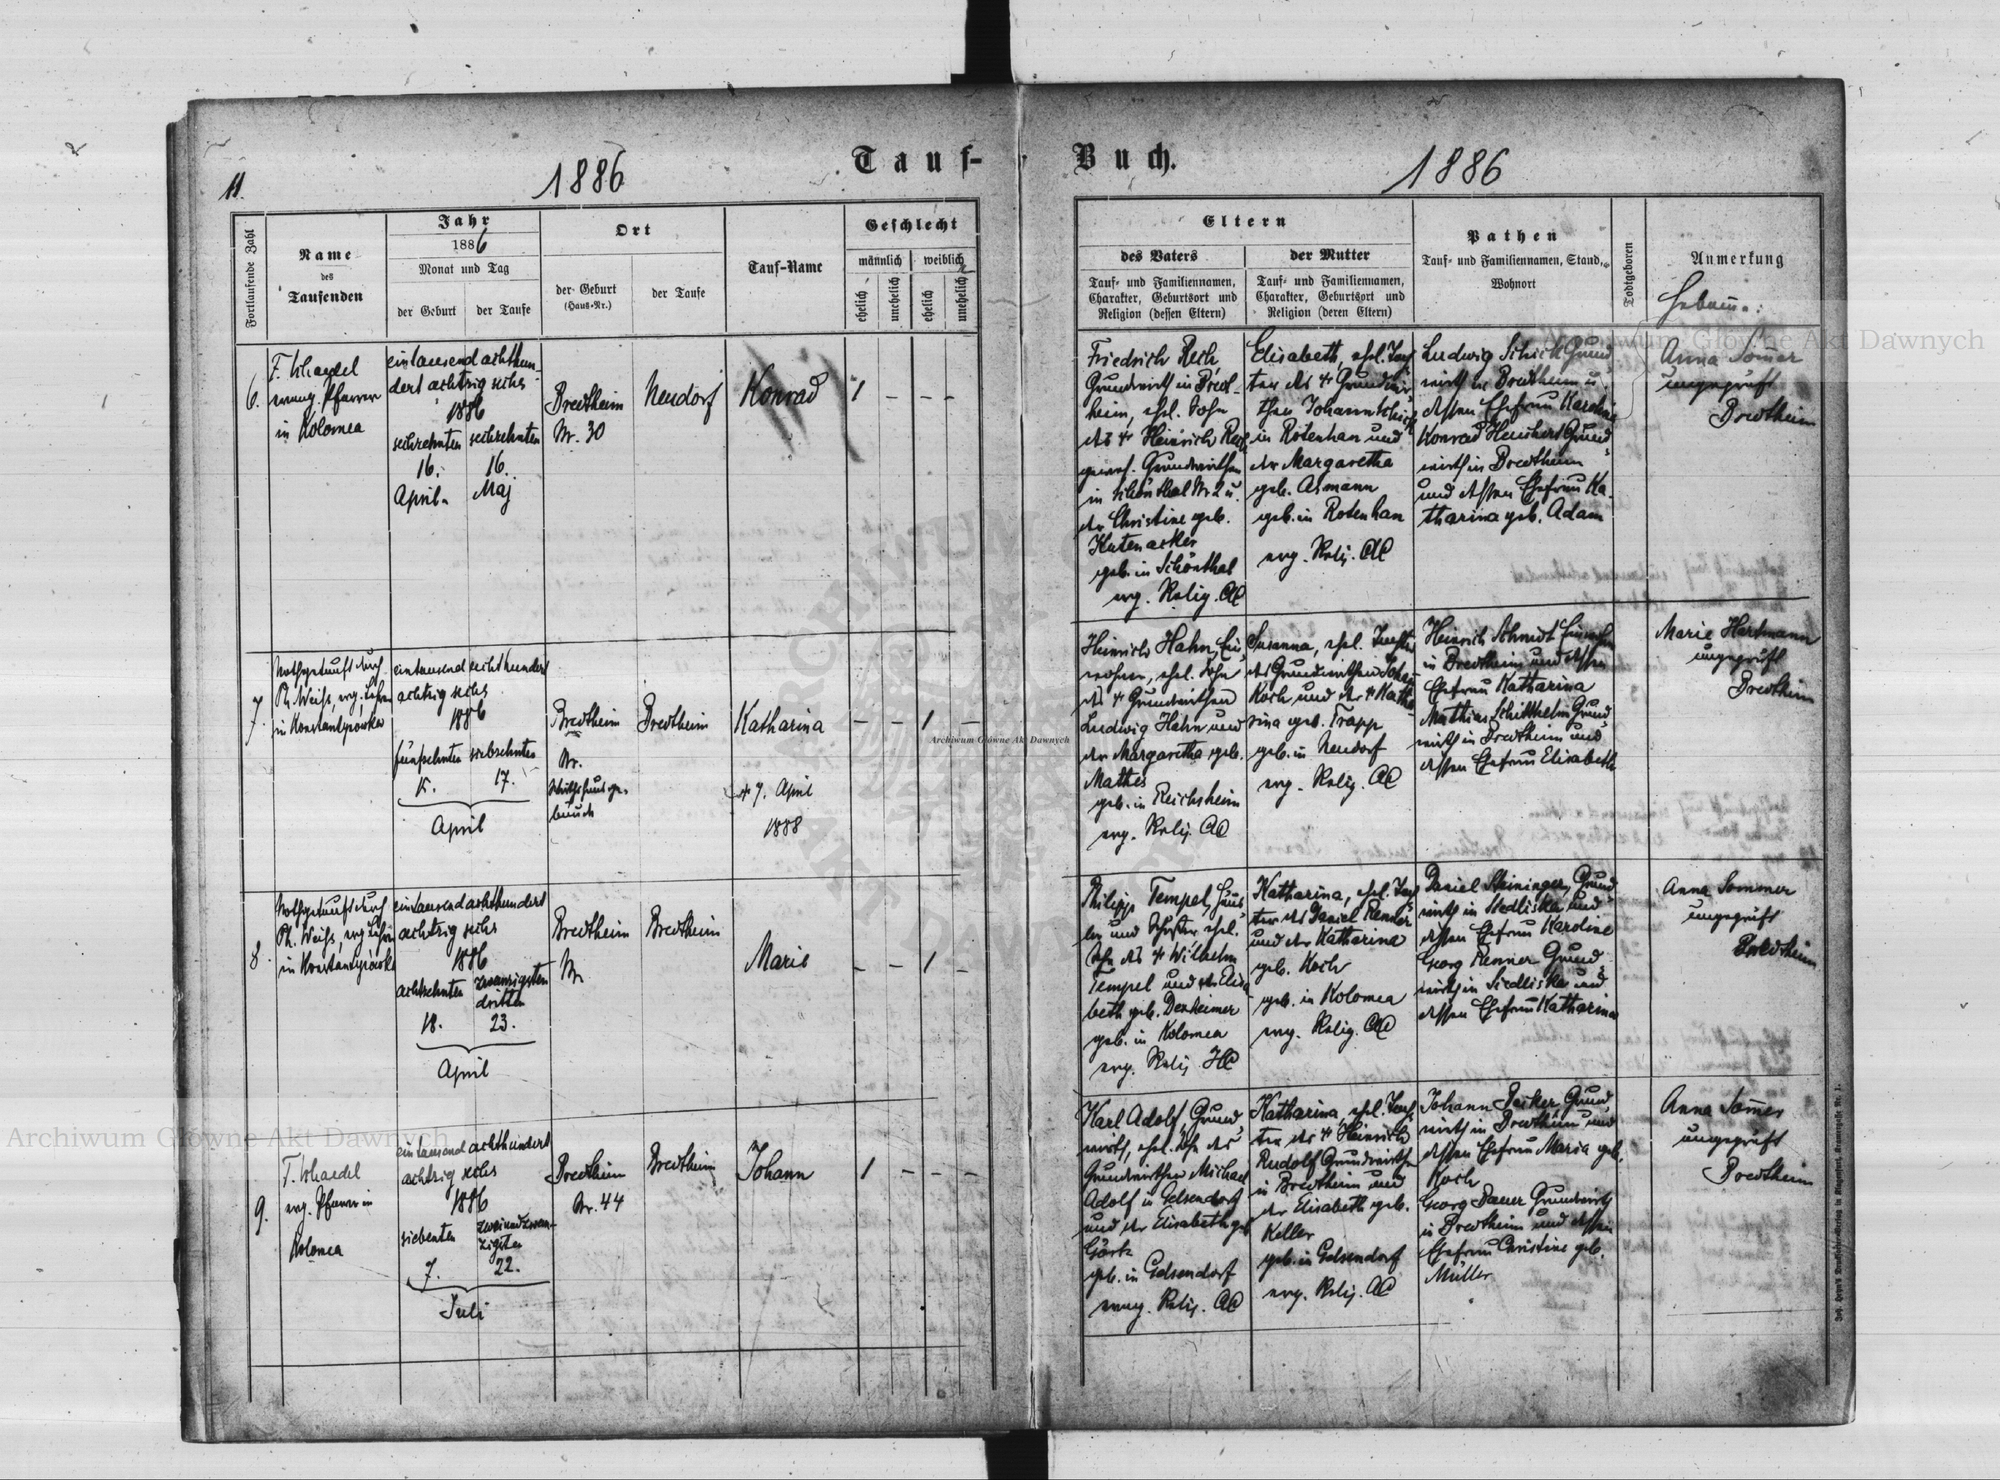 11.
1886
Tauf-
Fortlaufende Zahl
Name
des
Taufenden
Jahr
1886
Monat und Tag
der Geburt
der Taufe
Ort
der Geburt
(Haus-Nr.)
der Taufe
Tauf-Name
Geschlecht
männlich
weiblich
ehelich
unehelich
ehelich
unehelich
6.
evang. Pfarrer
in Kolomea
eintausend achthun-
dert achtzig sechs
1886
sechzehnten
16.
April
sechzehnten
16.
Maj
Bredtheim
Nr. 30
Neudorf
Konrad
1 – – –
7.
Nothgetauft durch
Ph. Weiss, evg. Lehrer
in Konstantynowka
eintausend achthundert
achtzig sechs
1886
fünfzehnten
15.
siebzehnten
17.
April
Bredtheim
Nr.
Bredtheim
Katharina
7. April
1888
– – 1 –
8.
Nothgetauft durch
Ph. Weiss, evg. Lehrer
in Konstantynowka
eintausend achthundert
achtzig sechs
1886
achtzehnten
18.
zwanzigsten
dritten
23.
April
Bredtheim
Nr.
Bredtheim
Marie
– – 1 –
9.
evg. Pfarrer in
Kolomea
eintausend achthundert
achtzig sechs
1886
siebenten
7.
zweiundzwan-
zigsten
22.
Juli
Bredtheim
Nr. 44
Bredtheim
Johann
1 – – –
Buch.
1886
Eltern
des Vaters
Tauf- und Familiennamen,
Charakter, Geburtsort und
Religion (dessen Eltern)
der Mutter
Tauf- und Familiennamen,
Charakter, Geburtsort und
Religion (deren Eltern)
Pathen
Tauf- und Familiennamen, Stand,
Wohnort
Todtgeboren
Anmerkung
Friedrich Rech,
Grundwirth in Bredt-
heim, ehel. Sohn
des Heinrich Rech
gewes. Grundwirthen
in Schönthal Nr. 2 u.
der Christine geb.
geb. in Schönthal
evg. Relig. AC
Elisabeth, ehel. Toch-
ter des Grundwir-
then Johann
in Rotenhan und
der Margaretha
geb. Asmann
geb. in Rotenhan
evg. Relig. AC
Ludwig Schick Grund-
wirth in Bredtheim u.
dessen Ehefrau Karoline
Konrad Grund-
wirth in Bredtheim
und dessen Ehefrau Ka-
tharina geb. Adam
Anna Somer
ungeprüft
Bredtheim
Heinrich Hahn, Ein-
wohner, ehel. Sohn
des Grundwirthen
Ludwig Hahn und
der Margaretha geb.
Mathes
geb. in Reichsheim
evg. Relig. AC
Susanna, ehel. Tochter
des Grundwirthen Johann
Koch und der Katha-
rina geb. Trapp
geb. in Neudorf
evg. Relig. AC
Heinrich Schmidt
in Bredtheim und dessen
Ehefrau Katharina
Mathias Grund-
wirth in Bredtheim und
dessen Ehefrau Elisabeth
Marie Hartmann
ungeprüft
Bredtheim
Philipp Tempel, Häus-
ler und Schuster ehel.
Sohn des Wilhelm
Tempel und der Elisa-
beth geb. Denheimer
geb. in Kolomea
evg. Relig. HC
Katharina, ehel. Toch-
ter des Daniel Renner
und der Katharina
geb. Koch
geb. in Kolomea
evg. Relig. AC
Daniel Steininger, Grund-
wirth in Siedliska und
dessen Ehefrau Karoline
Georg Renner Grund-
wirth in Siedliska und
dessen Ehefrau Katharina
Anna Sommer
ungeprüft
Bredtheim
Karl Adolf, Grund-
wirth, ehel. Sohn des
Grundwirthen Michael
Adolf in Gelsendorf
und der Elisabeth geb.
geb. in Gelsendorf
evang. Relig. AC
Katharina, ehel. Toch-
ter des Heinrich
Rudolf Grundwirthen
in Bredtheim und
der Elisabeth geb.
Keller
geb. in Gelsendorf
evg. Relig. AC
Johann Decker Grund-
wirth in Bredtheim und
dessen Ehefrau Maria geb.
Koch
Georg Bauer Grundwirth
in Bredtheim und dessen
Ehefrau Christine geb.
Müller
Anna Somer
ungeprüft
Bredtheim
Archiwum Główne Akt Dawnych